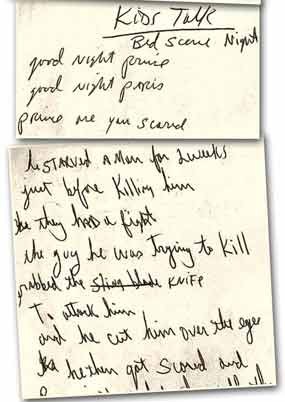 Kids Talk
Bed Scene Night
good night prince
good night paris
prince are you scared
he STARVED A Man for 2 weeks
just before Killing him
they HAD a fight
the guy he was Trying to Kill
grabbed the KNIFE
To attack him
and he cut him over the eyes
he then got Scared and